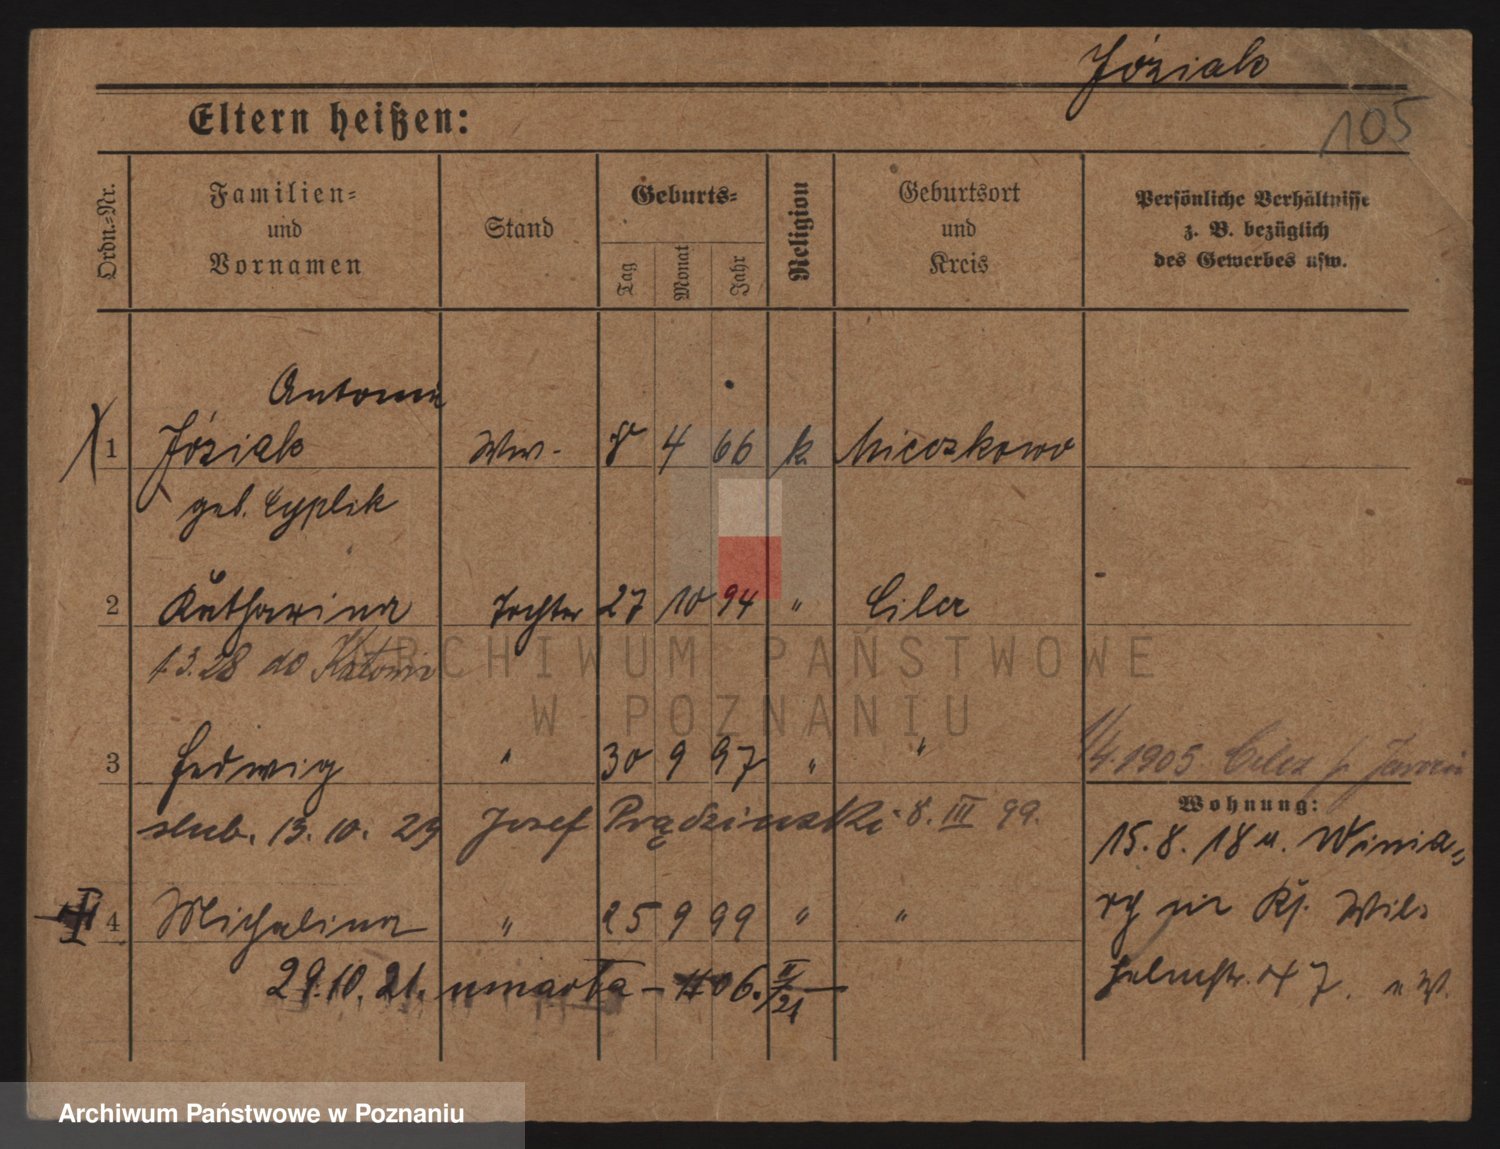 Józiak
105
Eltern heißen:
Ordn.=Nr.
Familien=
und
Vornamen
Stand
Geburts=
Tag
Monat
Jahr
Religion
Geburtsort
und
Kreis
Persönliche Verhältnisse
z. B. bezüglich
des Gewerbes usw.
Antonie
1 Józiak Ww. 8 4 66 k. Mieczkowo
geb. Cyplik
2 Katharina Tochter 27 10 94 " Cilcz
1.3.28 do
3 Hedwig " 30 9 97 " " 1/4.1905 Cilcz
ślub. 13. 10. 29 Josef Prądzinski 8. III 99.
Wohnung:
15. 8. 18 u. Winia=
4 Michalina " 25 9 99 " "
ry Kr. Wil=
29.10.21. umarła - 06. II/21
helmstr. 7.
ARCHIWUM PAŃSTWOWE
W POZNANIU
Archiwum Państwowe w Poznaniu